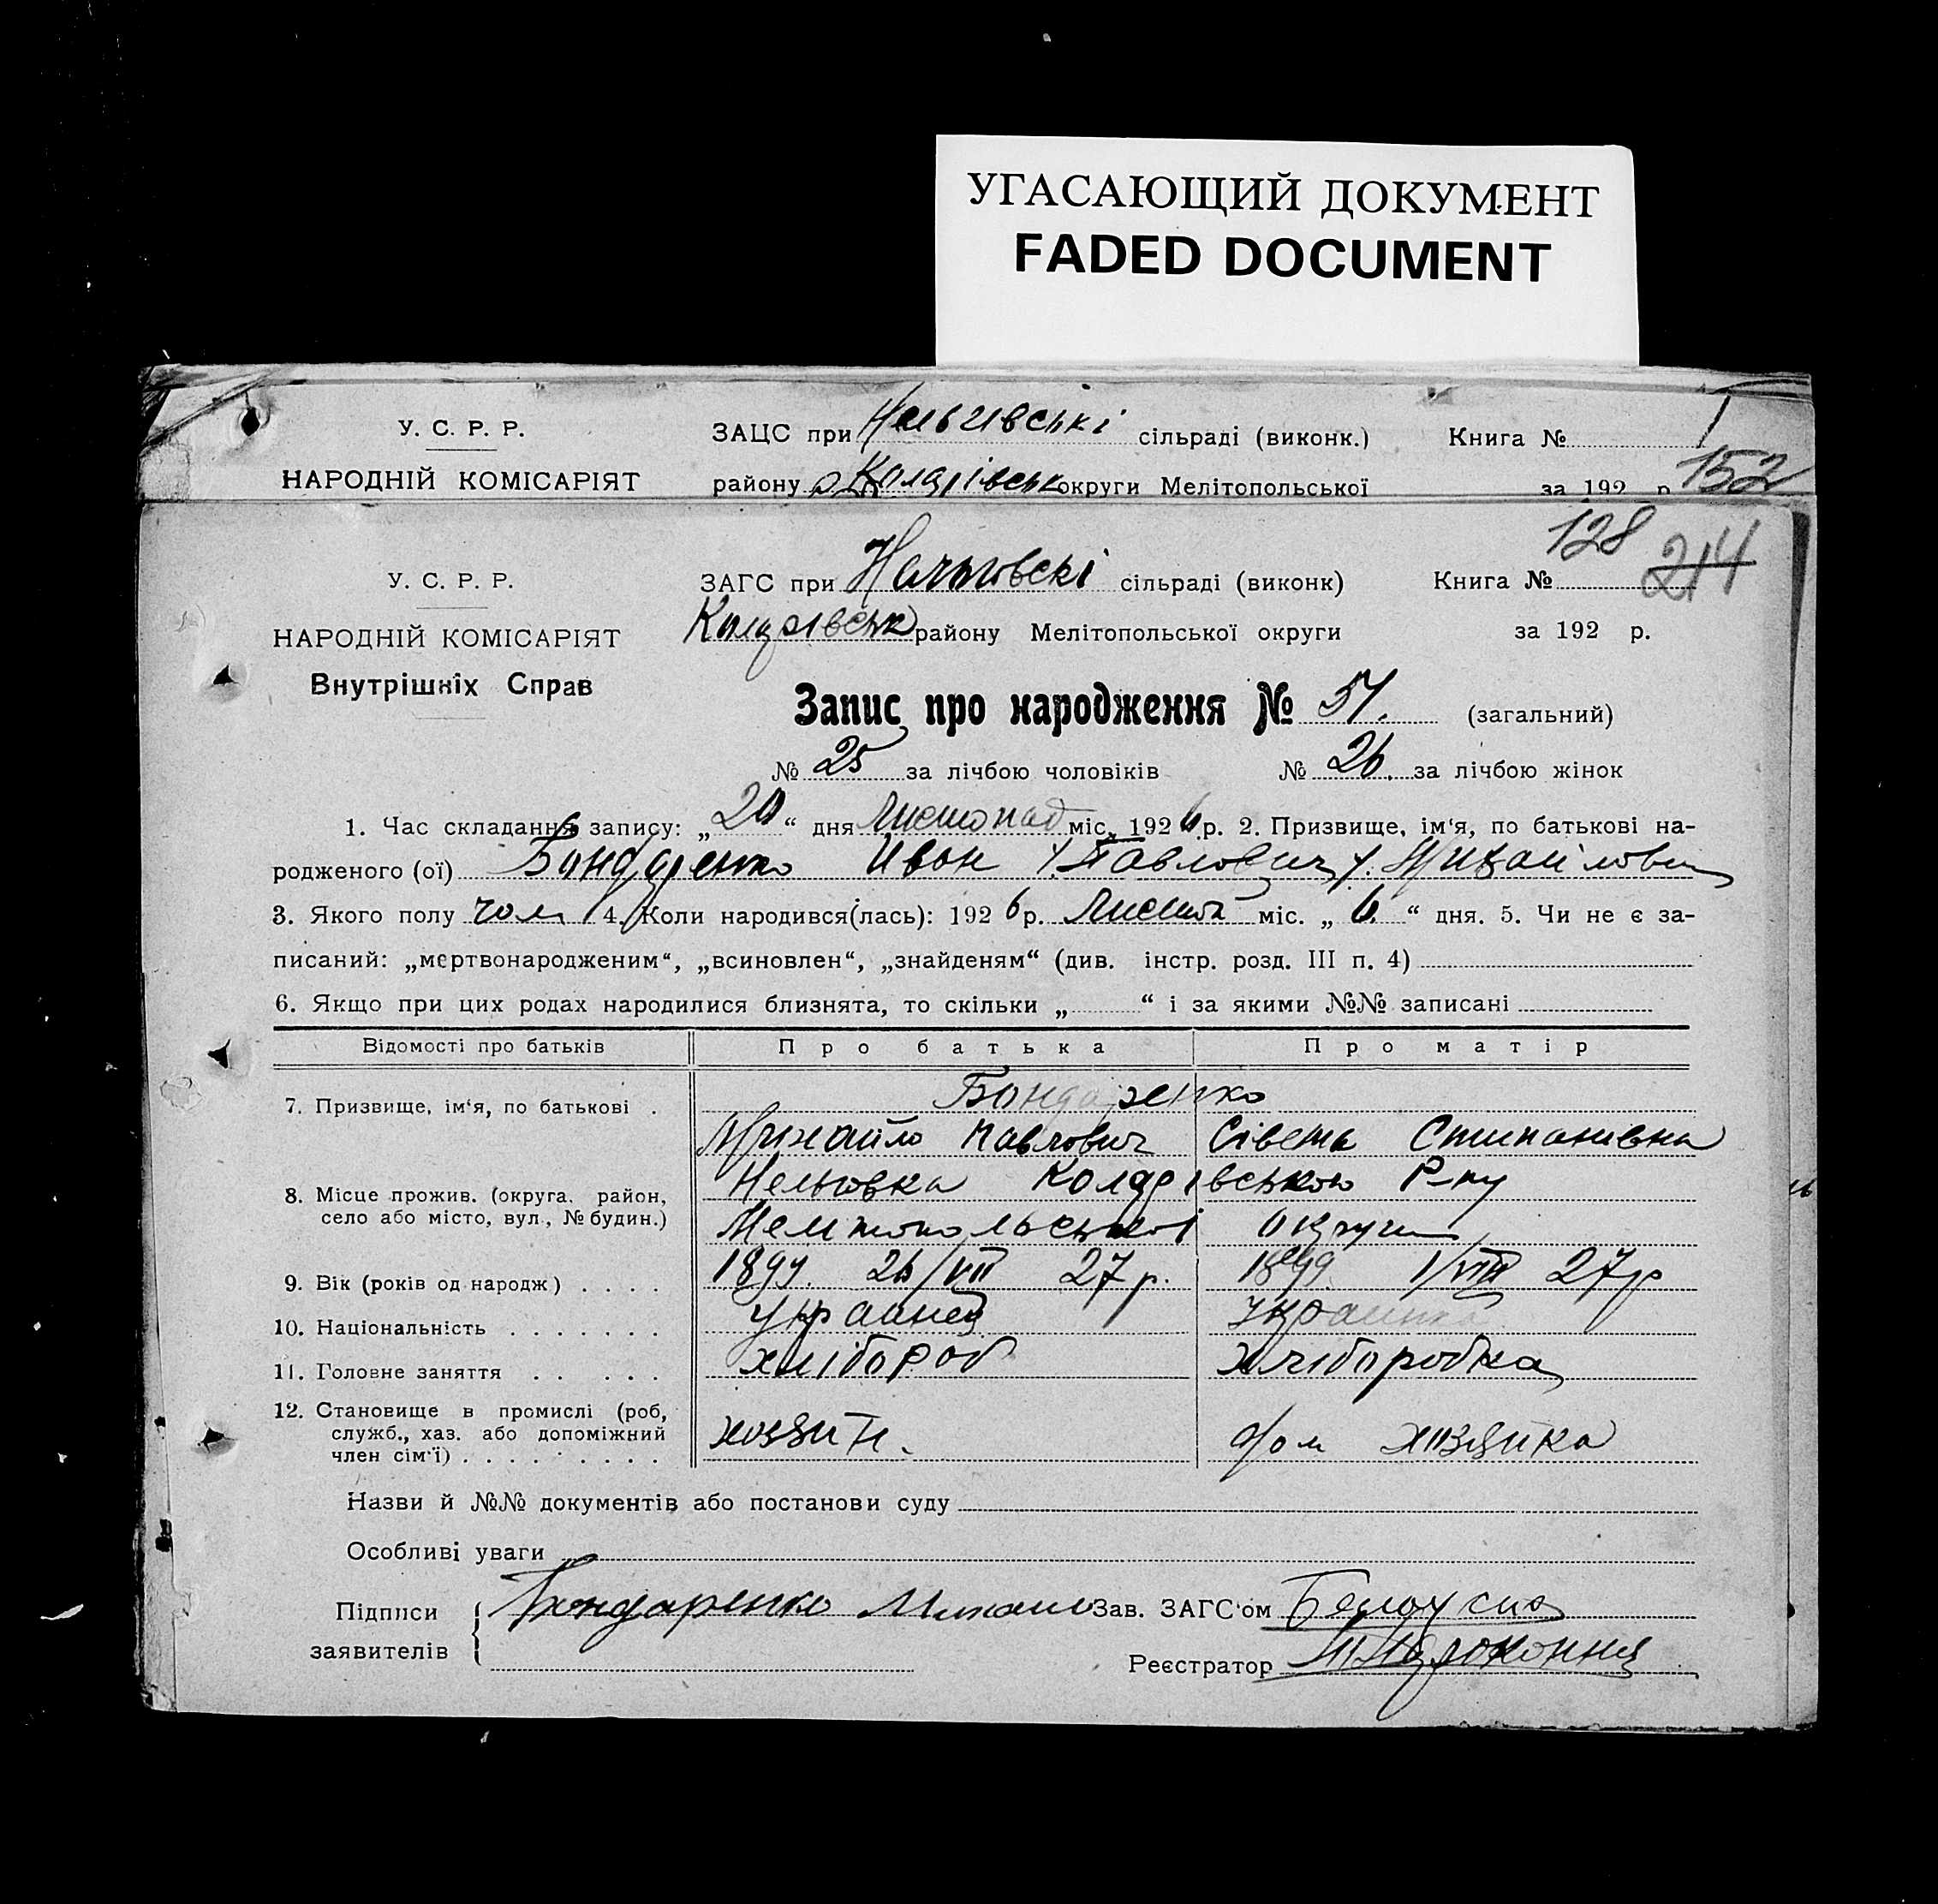 УГАСАЮЩИЙ ДОКУМЕНТ
FADED DOCUMENT
У. С. Р. Р. ЗАЦС при Нельгівські сільраді (виконк.) Книга №
НАРОДНІЙ КОМІСАРІЯТ району Коларівськ округи Мелітопольської за 192 р. 152
128
214
У. С. Р. Р. ЗАГС при Нельговскі сільраді (виконк) Книга №
НАРОДНІЙ КОМІСАРІЯТ Коларівськ району Мелітопольської округи за 192 р.
Внутрішніх Справ
Запис про народження № 51. (загальний)
№ 25 за лічбою чоловіків № 26. за лічбою жінок
1. Час складання запису: „20“ дня Листопад міс. 1926 р. 2. Призвище, ім‘я, по батькові на-
родженого (ої) Бондаренко Иван Павлович Михайлович
3. Якого полу чол 4. Коли народився(лась): 1926 р. Листоп міс. „6.“ дня. 5. Чи не є за-
писаний: „мертвонародженим“, „всиновлен“, „знайденям“ (див. інстр. розд. III п. 4)
6. Якщо при цих родах народилися близнята, то скільки „ “ і за якими №№ записані
Відомості про батьків Про батька Про матір
7. Призвище, ім‘я, по батькові . Бондаренко
Михайло Павлович Сівета Степанивна
8. Місце прожив. (округа, район, село або місто, вул., № будин.) Нельговка Коларівською Р-ну
Мелітопольської Округи
9. Вік (років од народж) . . . . 1899. 26/VII 27 р. 1899. 1/VIII 27 р
10. Національність . . . . . . . Украинец Украинка
11. Головне заняття . . . . . хлібороб хліборобка
12. Становище в промислі (роб,
служб., хаз. або допоміжний хозяін. дом хозяйка
член сім‘ї) . . . . . . . . .
Назви й №№ документів або постанови суду
Особливі уваги
Підписи заявителів Бондаренко Михаил Зав. ЗАГС‘ом
Реєстратор